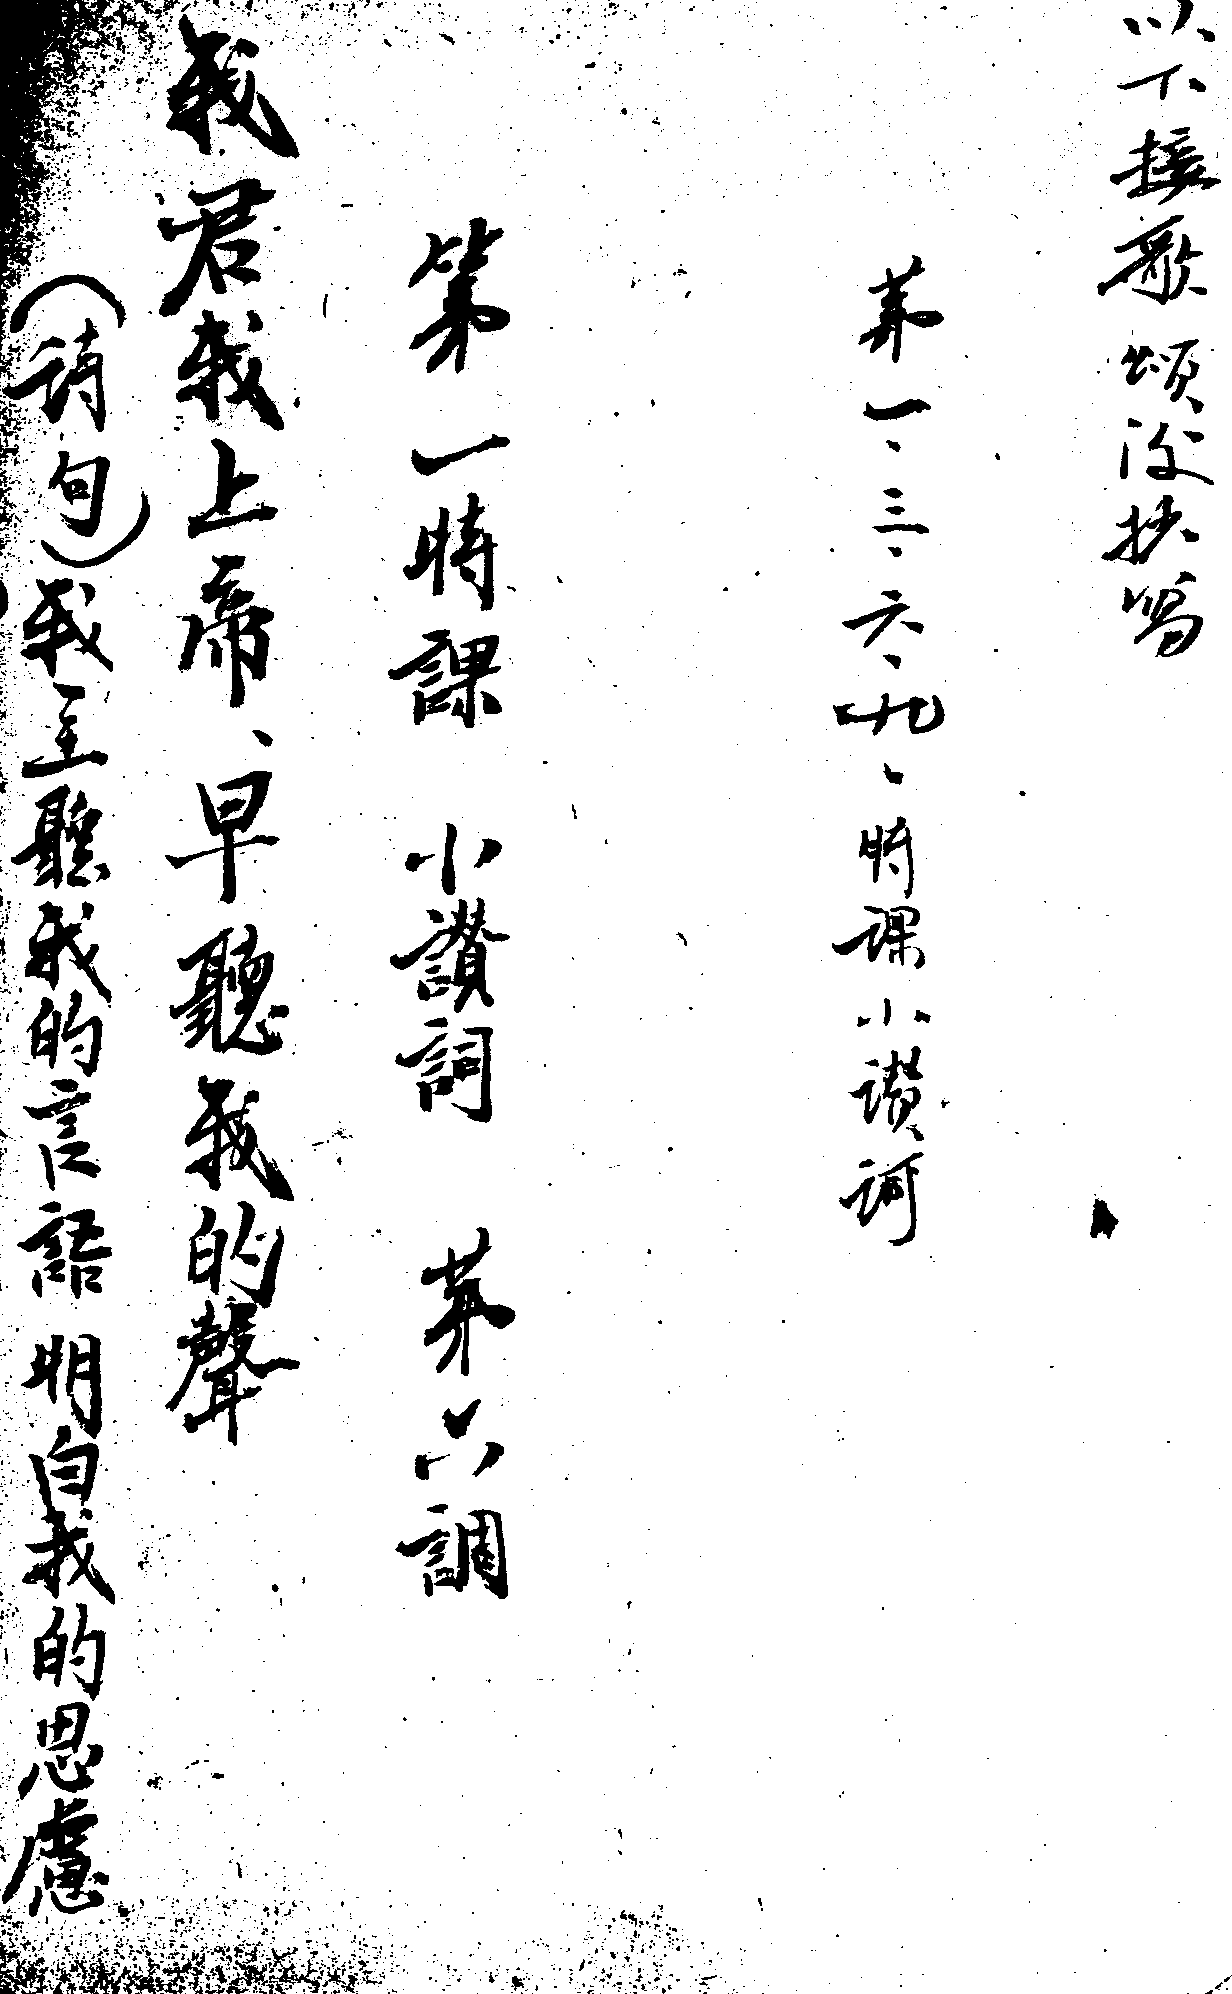 以下接歌頌没抄寫
第一、三、六、九、時課小讚詞
第一時課 小讚詞 第六調
我君我上帝、早聽我的聲
（詩句）我主聽我的言語明白我的思慮